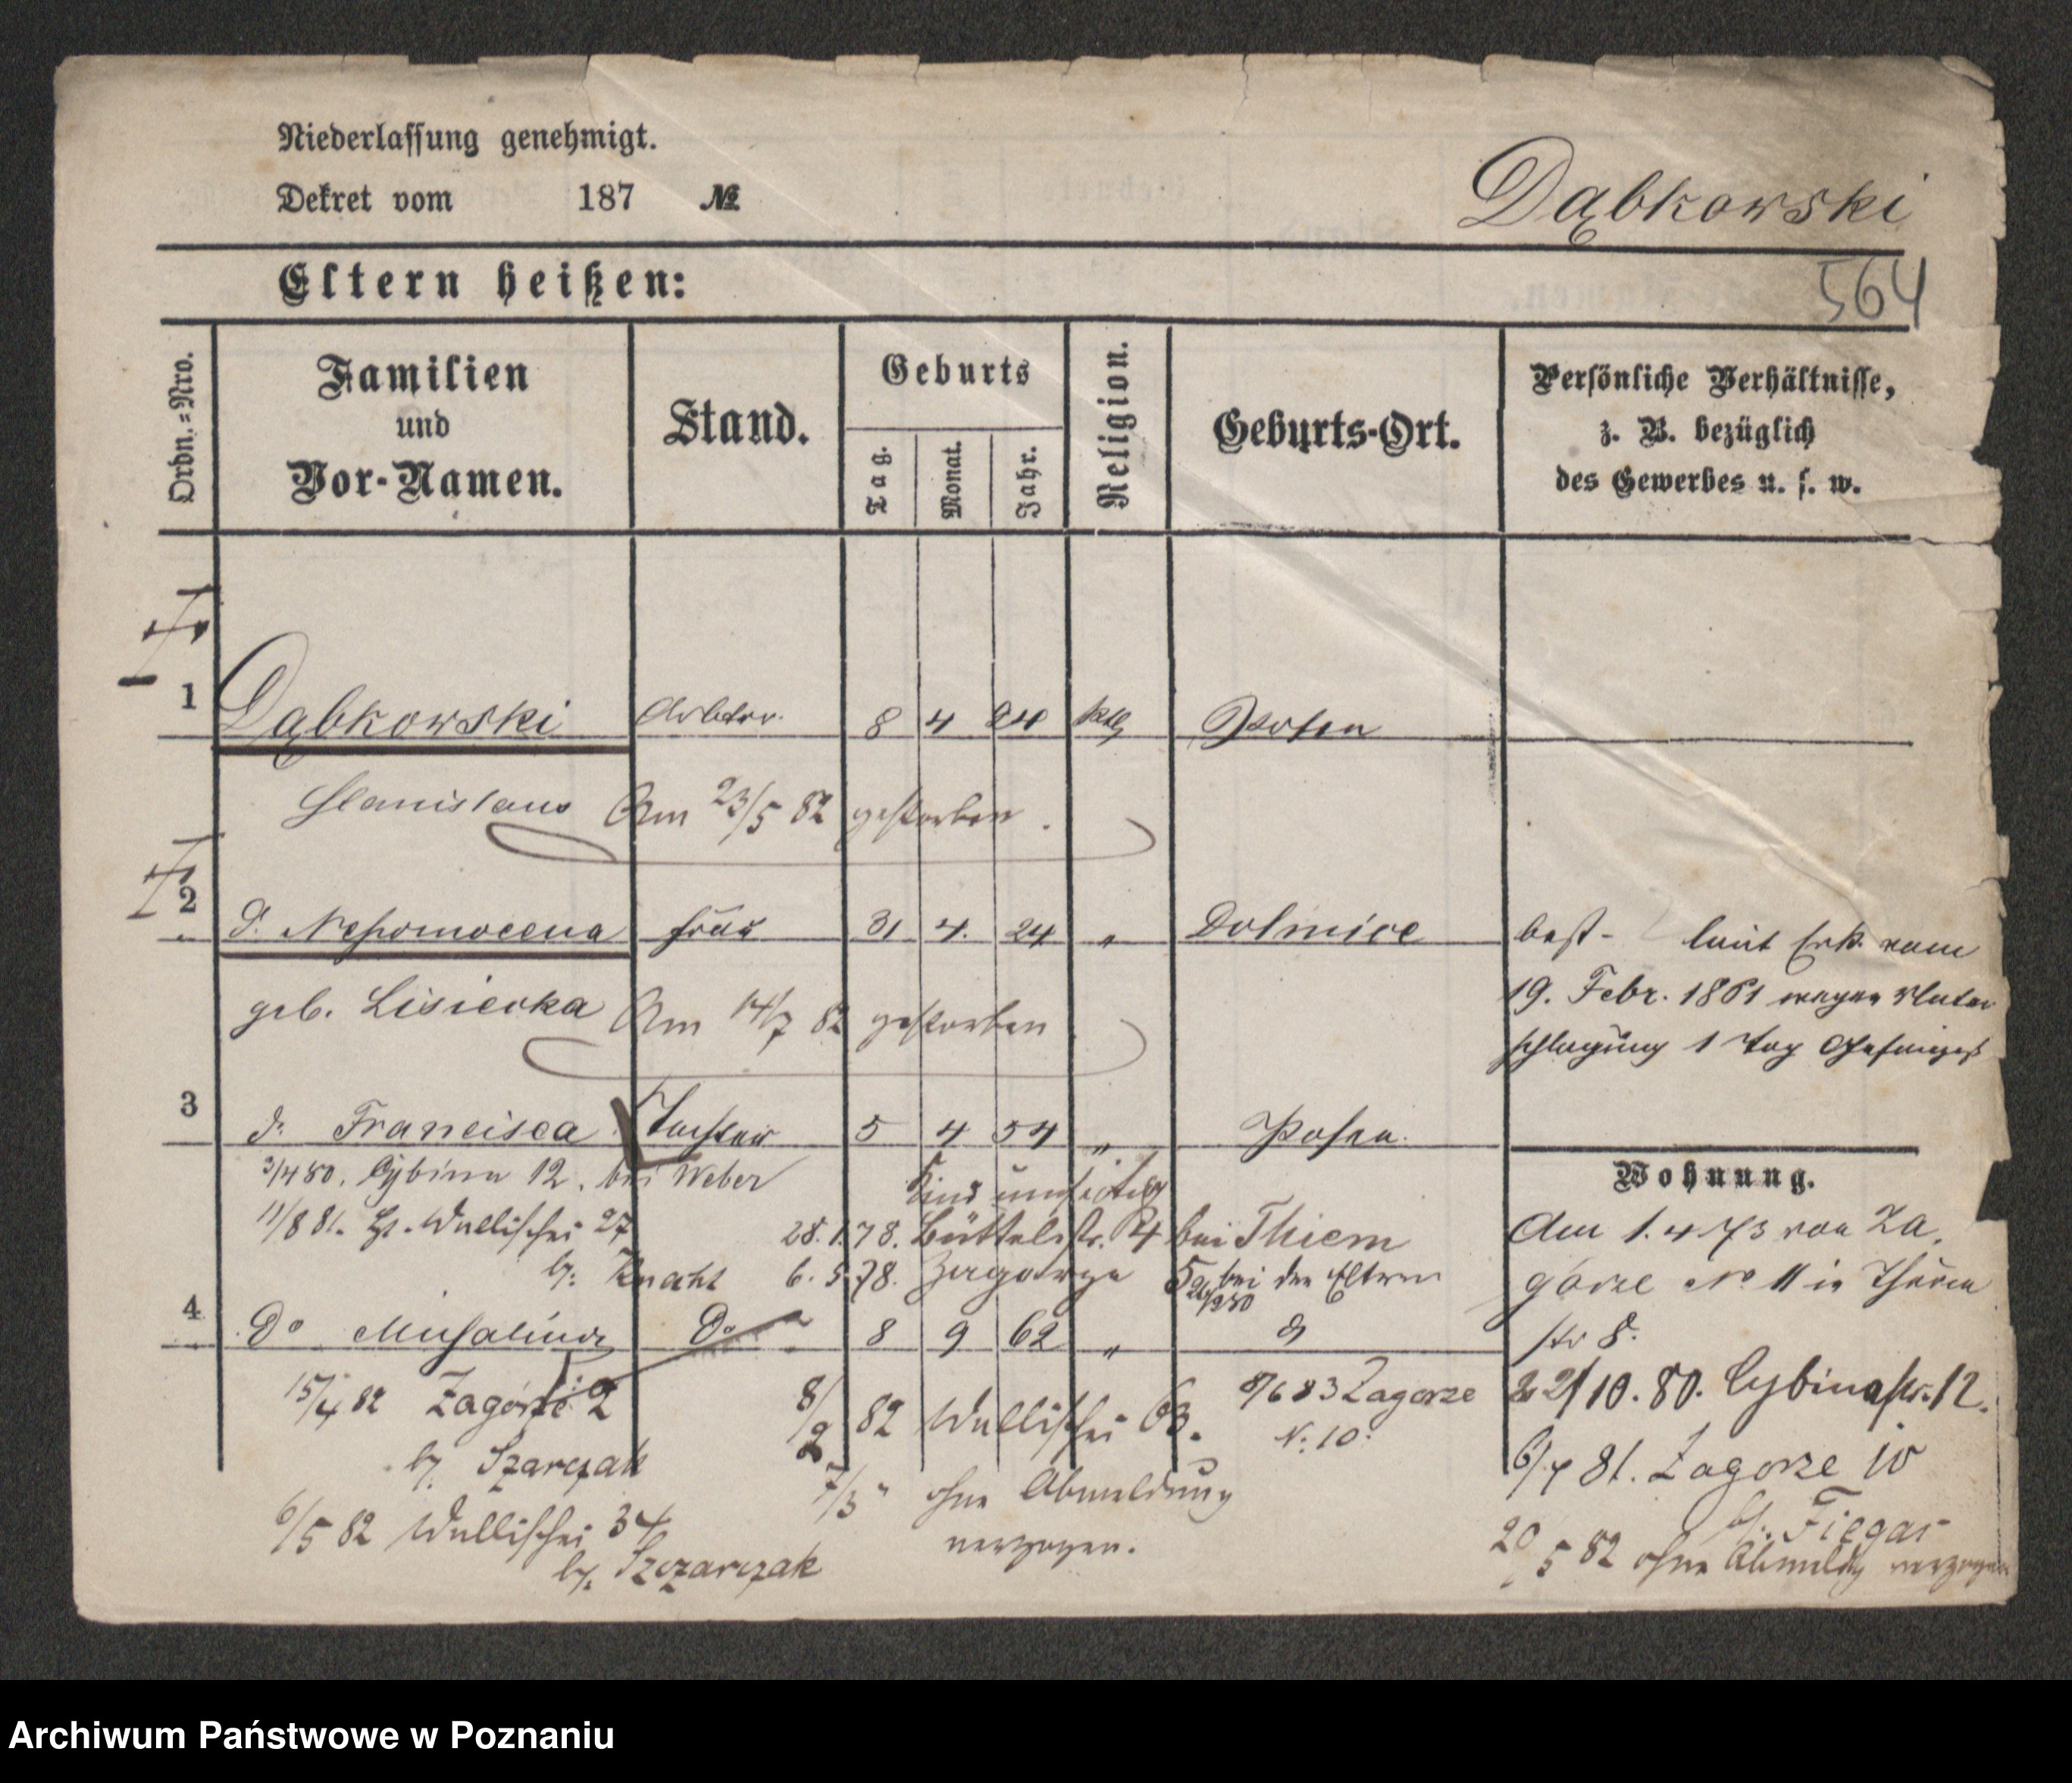 Niederlassung genehmigt.
Dekret vom 187 №
Dąbkowski
564
Eltern heißen:
Ordn.=Nro.
Familien
und
Vor-Namen.
Stand.
Geburts
Tag.
Monat.
Jahr.
Religion.
Geburts-Ort.
Persönliche Verhältnisse,
z. B. bezüglich
des Gewerbes u. s. w.
1 Dąbkowski 8 4 24 Posen
Stanislaus Am 23/5 82 gestorben.
2 d. Nepomocena Frau 31 4. 24 "
best- laut Erk. vom
geb. Lisiecka Am 14/7 82 gestorben
19. Febr. 1861 wegen Unter
schlagung 1 Tag Gefängniß
3 d. Francisca Tochter 5 4 54 " Posen.
Wohnung.
3/4 80. Cybina 12. bei Weber
11/8 81. Wallischei 27
b/. Knecht
28. 1. 78. Büttelstr. bei Thiem
6. 5. 78. Zagorze bei den Eltern
Am 1. 4 73 von Za,
gorze No 11 in Thurm
str 8.
4 Do Do 8 9 62 "
15/4 82 Zagorze 2
b/. Szarczak
6/5 82 Wallischei 34
b/. Szczarczak
82 Wallischei
7/3 " ohne Abmeldung
verzogen.
8/6 83 Zagorze
N. 10.
22/10. 80. Cybinastr. 12.
81. Zagorze 10
b/. Fiegas
20/5 82 ohne Abmeldg verzogen
Archiwum Państwowe w Poznaniu